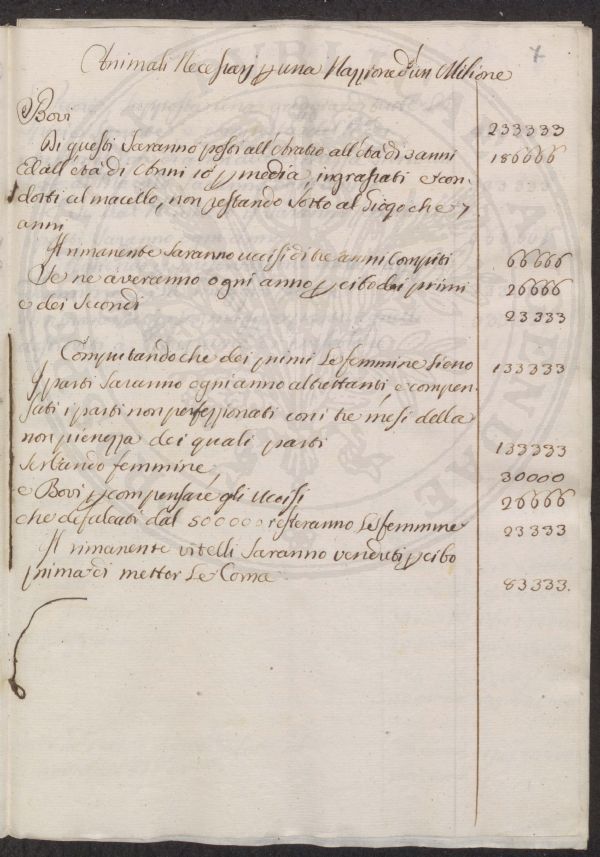 Animali Necessarj p una Nazzione d'un Milione
Bovi 233333
Di questi saranno posti all'Aratro all'età di 3 anni 186666
Ed all'età di Anni 10 p media, ingrassati e con-
dotti al macello, non restando sotto al Giogo che 7
anni
Il rimanente saranno uccisi di tre anni compiti 66666
Se ne averanno ogni anno p cibo dei primi 26666
e dei secondi 23333
Computando che dei primi le femmine sieno 133333
I parti saranno ogni anno altrettanti e compen-
sati i parti non perfezzionati con i tre mesi della
non pienezza dei quali parti 133333
serbando femmine 30000
e Bovi p compensare gli uccisi 26666
che defalcati dal 50000 resteranno le femmine 23333
Il rimanente vitelli saranno venduti p cibo
prima di metter le Corna 83333.